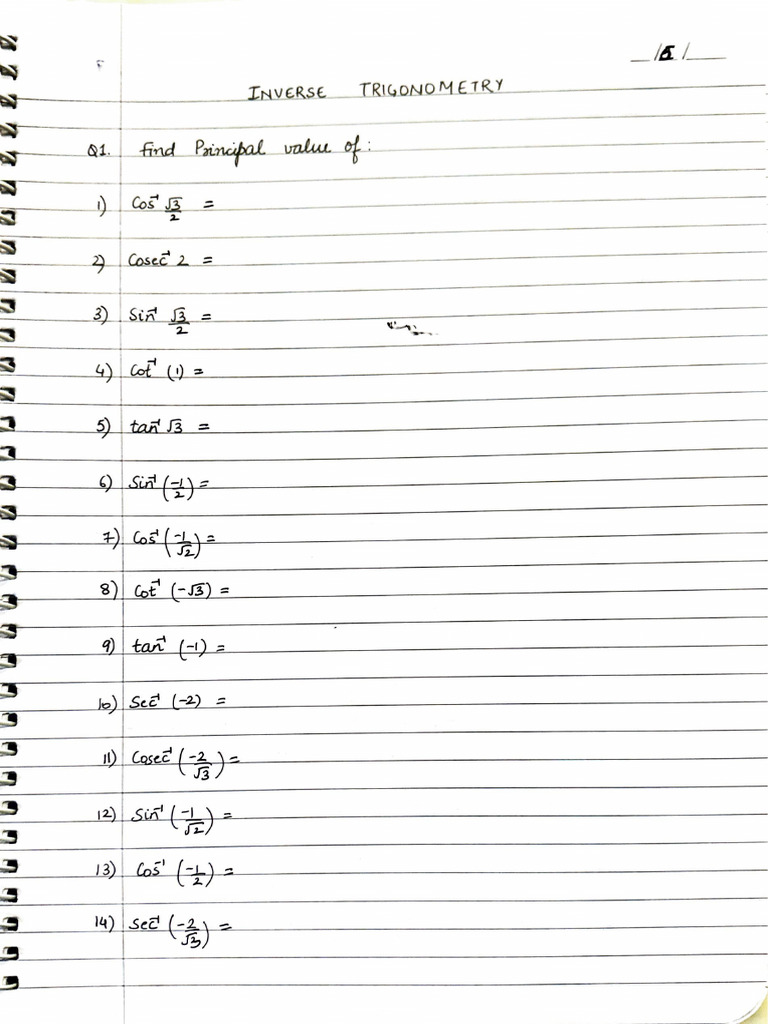 __/5/__
INVERSE TRIGONOMETRY
Q1. Find Principal value of:
1) Cos⁻¹ √3/2 =
2) Cosec⁻¹ 2 =
3) Sin⁻¹ √3/2 =
4) Cot⁻¹ (1) =
5) tan⁻¹ √3 =
6) Sin⁻¹ (-1/2) =
7) Cos⁻¹ (-1/√2) =
8) Cot⁻¹ (-√3) =
9) tan⁻¹ (-1) =
10) Sec⁻¹ (-2) =
11) Cosec⁻¹ (-2/√3) =
12) Sin⁻¹ (-1/√2) =
13) Cos⁻¹ (-1/2) =
14) Sec⁻¹ (-2/√3) =